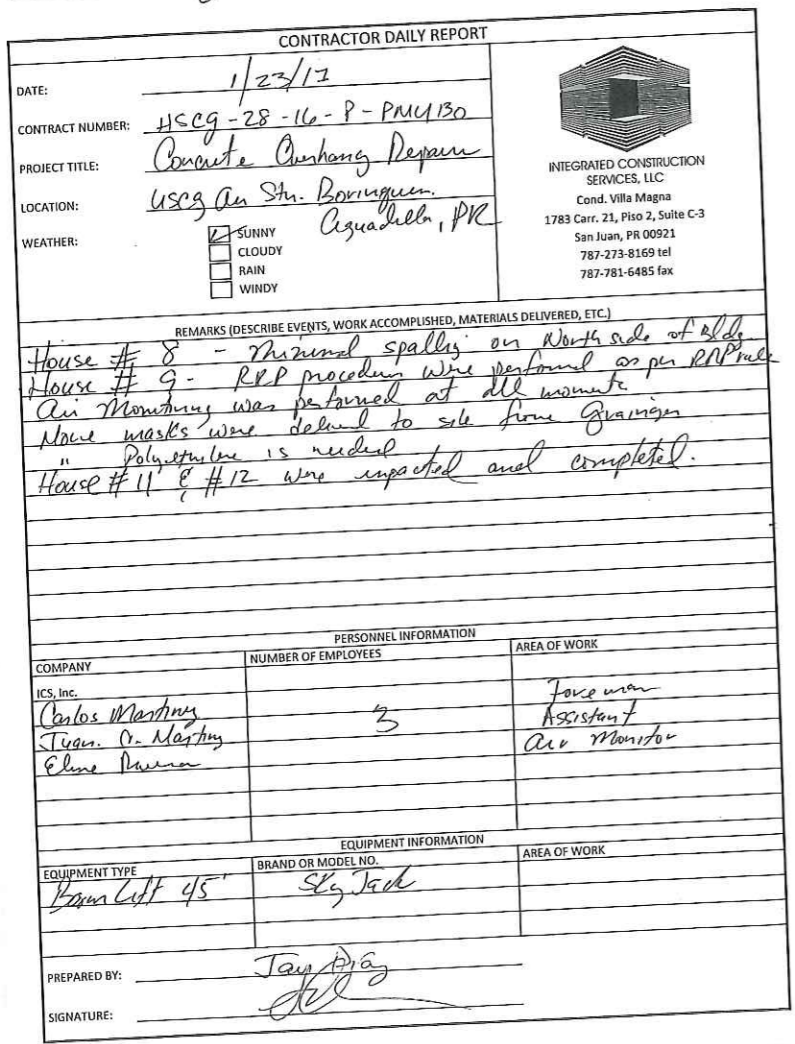 CONTRACTOR DAILY REPORT
DATE: 1/23/17
CONTRACT NUMBER: HSCG-28-16-P-PMU130
PROJECT TITLE: Concrete Overhang Repair
LOCATION: USCG Air Stn. Borinquen.
Aguadilla, PR
WEATHER:
SUNNY
CLOUDY
RAIN
WINDY
INTEGRATED CONSTRUCTION
SERVICES, LLC
Cond. Villa Magna
1783 Carr. 21, Piso 2, Suite C-3
San Juan, PR 00921
787-273-8169 tel
787-781-6485 fax
REMARKS (DESCRIBE EVENTS, WORK ACCOMPLISHED, MATERIALS DELIVERED, ETC.)
House # 8 - Minimal spallig on North side of Bldg
House # 9 - RRP procedures were performed as per RRP rule
Air Monitoring was performed at all moments
More masks were delived to site from Grainger
" Polyethylene is needed
House # 11 & #12 were impacted and completed.
PERSONNEL INFORMATION
COMPANY NUMBER OF EMPLOYEES AREA OF WORK
ICS, Inc.
Carlos Martinez Foreman
Juan Martinez 3 Assistant
Air Monitor
EQUIPMENT INFORMATION
EQUIPMENT TYPE BRAND OR MODEL NO. AREA OF WORK
Boom Lift 45' Sky Jack
PREPARED BY: Jay Diaz
SIGNATURE: